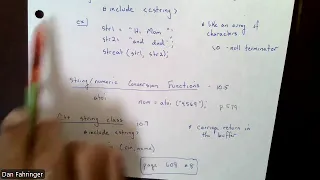 # include <cstring>
ex) str1 = "Hi Mom"; * like an array of
str2 = "and dad"; characters
strcat (str1, str2); \0 - null terminator
String/numeric Conversion Functions - 10.5
atoi num = atoi ("5569"); p 579
string class 10.7
# include <string> * carriage return in
(cin, name) the buffer
page 609 #8
Dan Fahringer